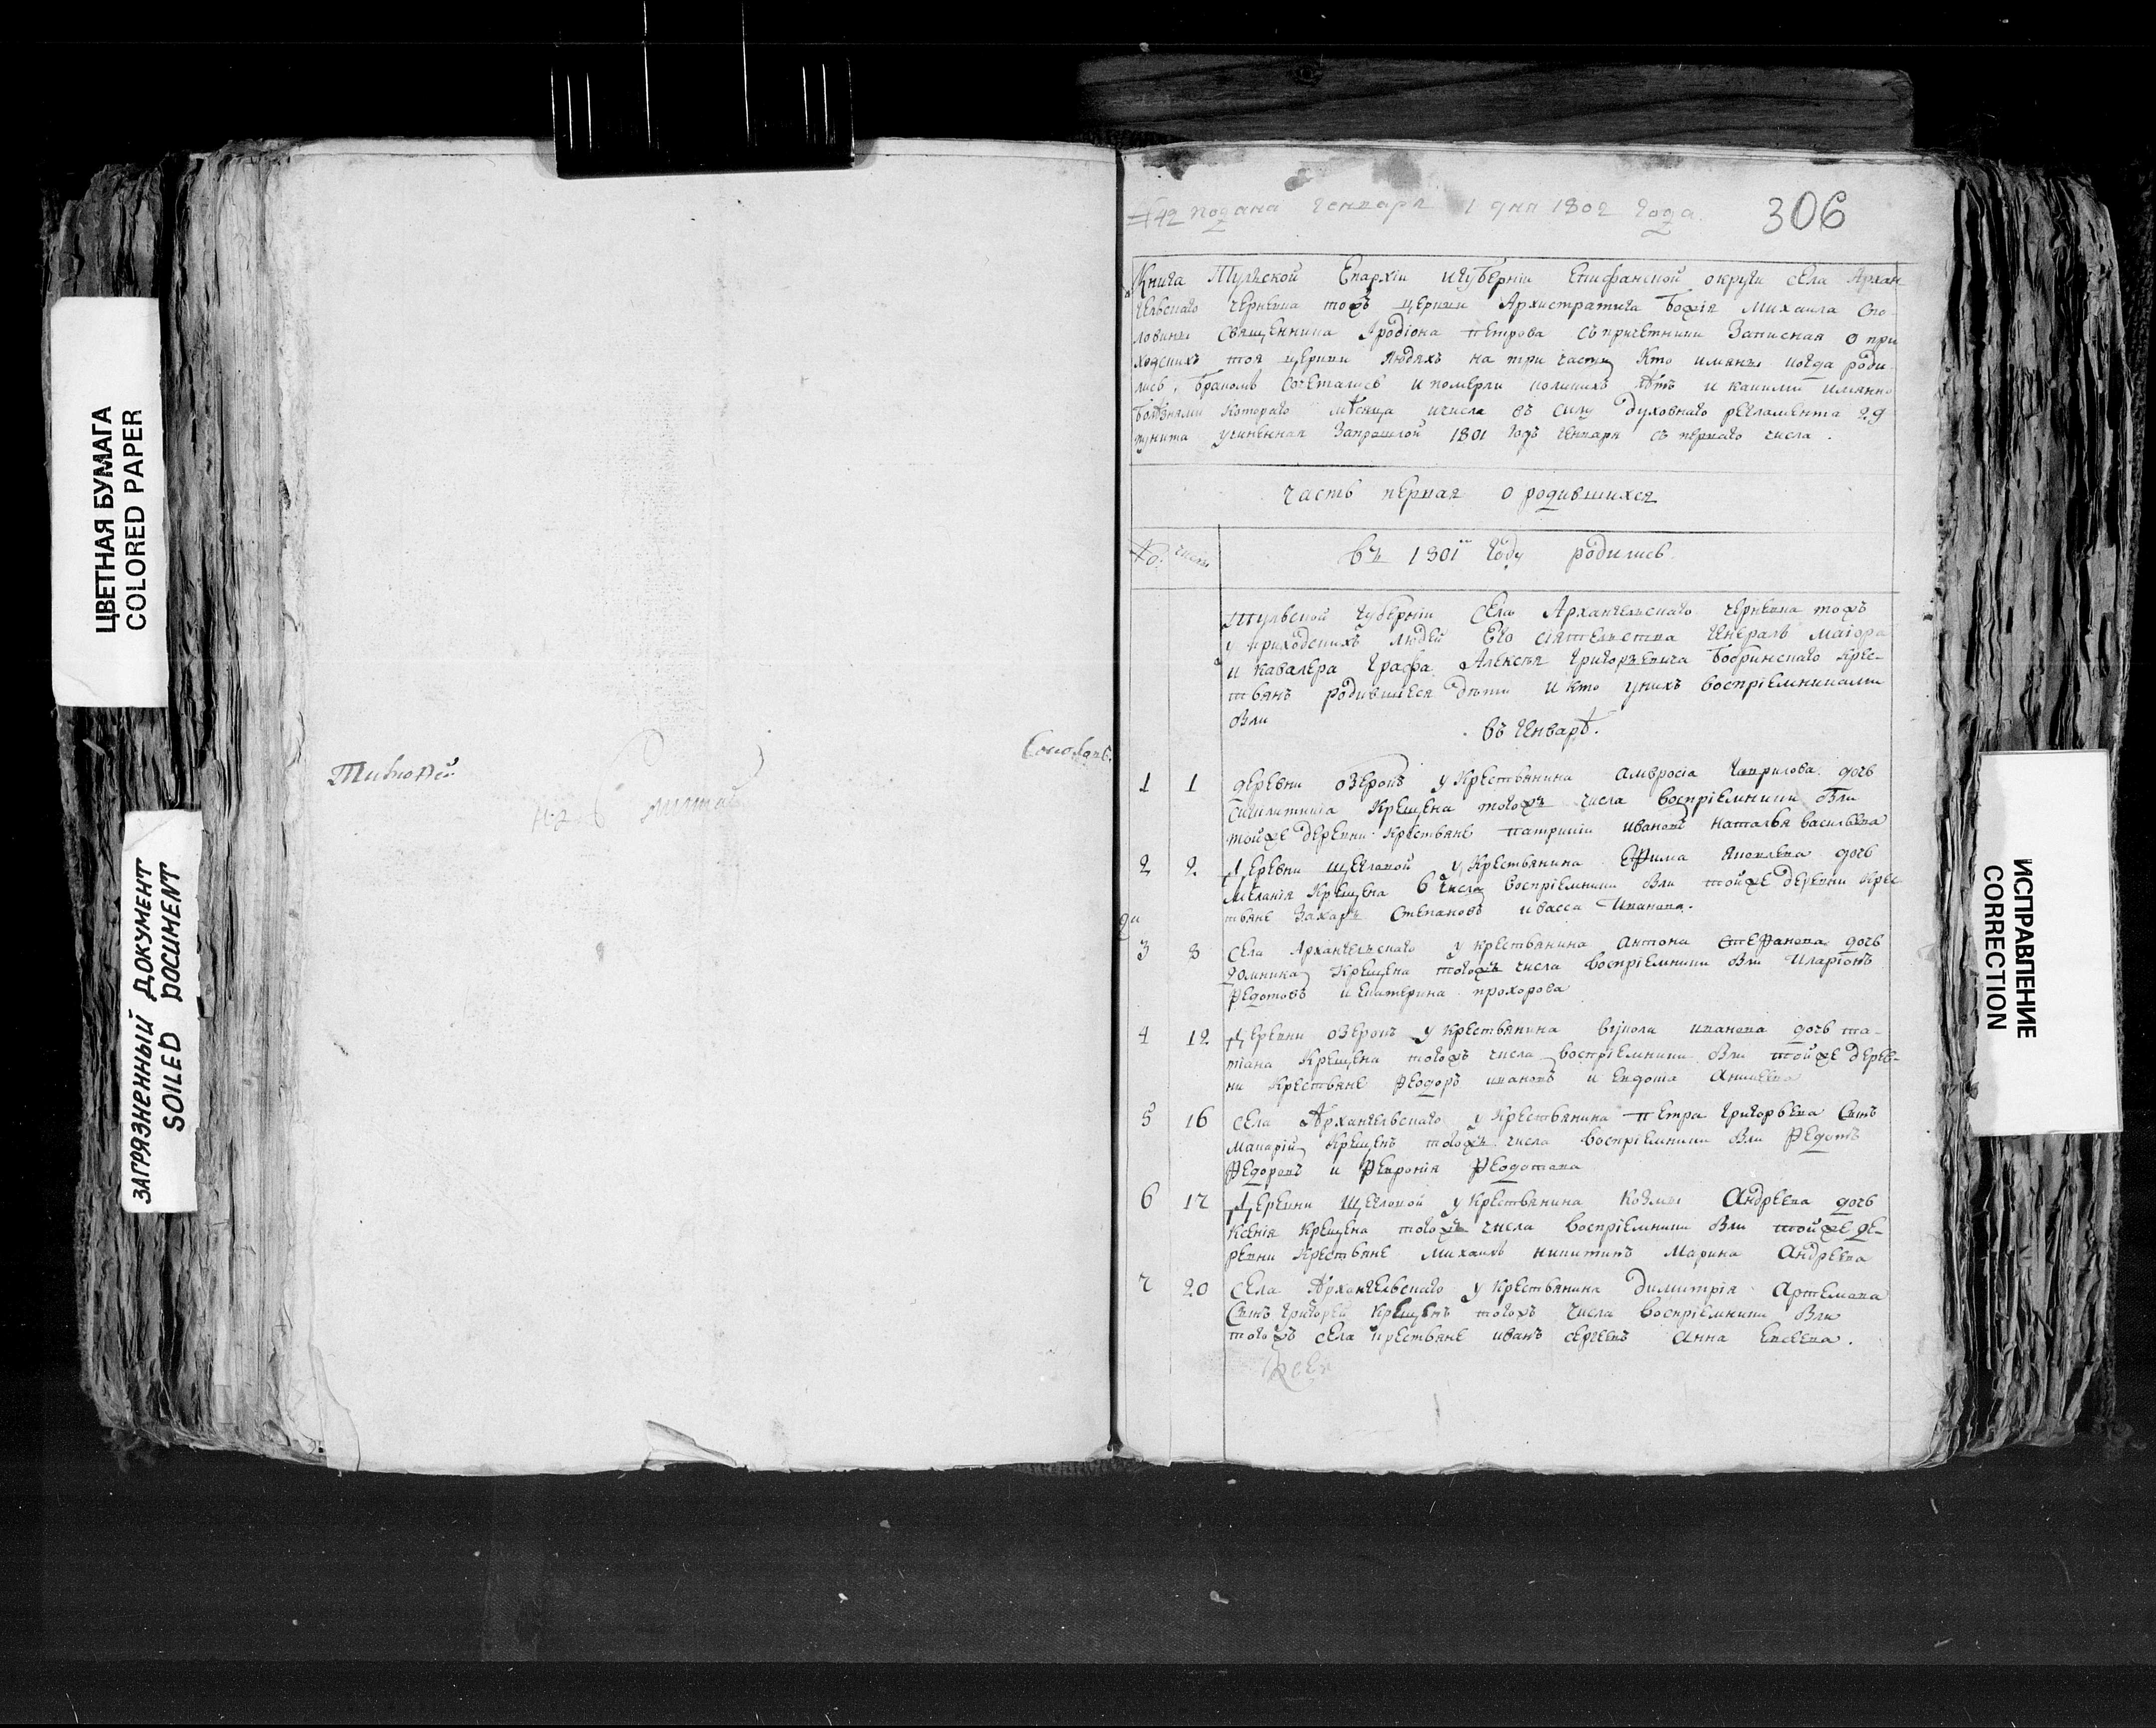 ЦВЕТНАЯ БУМАГА
COLORED PAPER
ЗАГРЯЗНЕННЫЙ ДОКУМЕНТ
SOILED DOCUMENT
Тимофей
Соколовъ
подана генваря 1 дня 1802 года.
306
Книга Тульской Епархіи и губерніи Епифанской округи села Архан
гельскаго Чернева тожъ церкви Архистратига Божія Михаила
священника Іродіона Петрова съ причетники Записная о при
ходскихъ тоя церкви людяхъ на три части кто имянъ когда роди
лись, бракомъ сочетались и померли коликихъ лѣтъ и какими имянно
болѣзнями котораго мѣсяца и числа въ силу духовнаго регламента 29
пункта учиненная Запрошлой 1801 годъ генваря съ перваго числа.
часть первая о родившихся
№ числа
въ 1801 году родились.
Тульской губерніи села Архангельскаго Чернева тожъ
у приходскихъ людей Его сіятельства Генералъ маіора
и кавалера графа Алексѣя Григорьевича Бобринскаго крес-
тьянъ родившиеся дѣти и кто у нихъ воспріемниками
были
въ генварѣ.
1 1 деревни озерокъ у крестьянина Амвросіа Гаврилова дочь
крещена тогожъ числа воспріемники были
тойже деревни крестьяне Патрикій Ивановъ Наталья Васильева
2 2 Деревни Щегловой у крестьянина Ефима Яковлева дочь
Меланія крещена 6 числа воспріемники были тойже деревни крес
тьяне Захаръ Степановъ и Васса Иванова.
3 8 села Архангельскаго у крестьянина Антона Стефанова дочь
Домника крещена тогожъ числа воспріемники были Иларіонъ
Федотовъ и Екатерина Прохорова
4 12 Деревни озерокъ у крестьянина Вукола Иванова дочь Та-
тіана крещена тогожъ числа воспріемники были тойже дерев-
ни крестьяне Феодоръ Ивановъ и Евдокиа
5 16 села Архангельскаго у крестьянина Петра Григорьева сынъ
Макарій крещенъ тогожъ числа воспріемники были Федотъ
Федоровъ и Февронія Феодотова
6 17 Деревни Щегловой у крестьянина Козмы Андреева дочь
Ксенія крещена тогожъ числа воспріемники были тойже де-
ревни крестьяне Михаилъ Никитинъ Марина Андреева
7 20 села Архангельскаго у крестьянина Димитрія Артемова
сынъ Григорей крещенъ тогожъ числа воспріемники были
тогожъ села крестьяне Иванъ Сергеевъ Анна Евсеева.
ИСПРАВЛЕНИЕ
CORRECTION